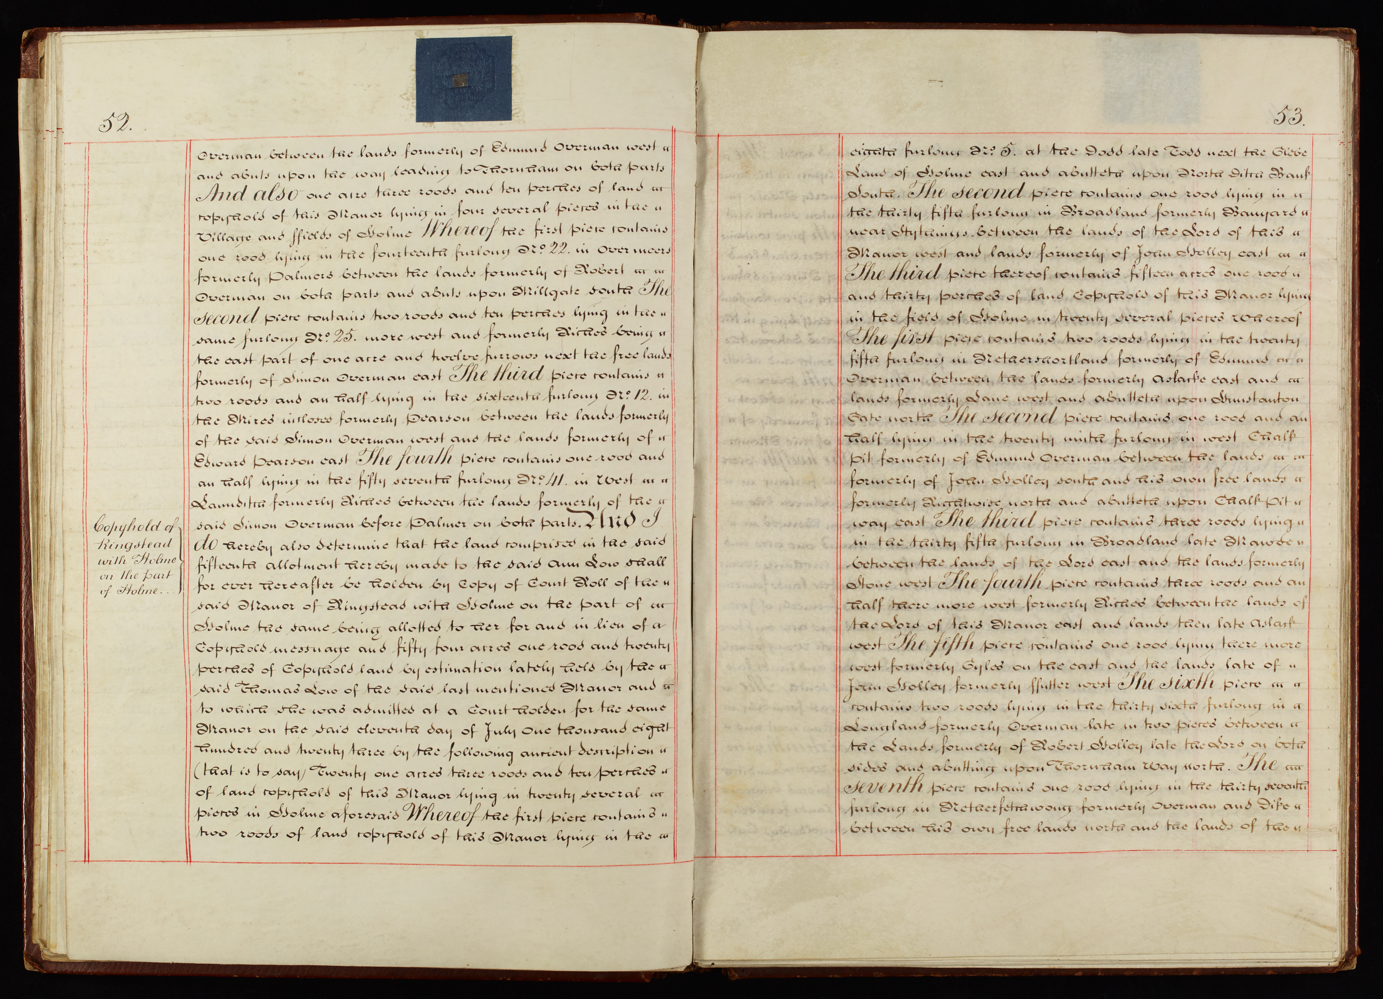 52.
Overman between the lands formerly of Edmund Overman west
and abuts upon the way leading to Thornham on both parts
And also one acre three roods and ten perches of land
copyhold of this Manor lying in four several pieces in the
Village and ffields of Holme Whereof the first piece contains
one rood lying in the fourteenth furlong No. 22. in Overmeers
formerly Palmers between the lands formerly of Robert
Overman on both parts and abuts upon Millgate south The
second piece contains two roods and ten perches lying in the
same furlong No. 25. more west and formerly Riches being
the east part of one acre and twelve furrows next the free lands
formerly of Simon Overman east The third piece contains
two roods and an half lying in the sixteenth furlong No. 12. in
the Mires inclosed formerly Pearson between the lands formerly
of the said Simon Overman west and the lands formerly of
Edward Pearson east The fourth piece contains one rood and
an half lying in the fifty seventh furlong No. 41. in West
Laundith formerly Riches between the lands formerly of the
said Simon Overman before Palmer on both parts. And I
do hereby also determine that the land comprised in the said
fifteenth allotment hereby made to the said Ann Low shall
for ever hereafter be holden by Copy of Court Roll of the
said Manor of Ringstead with Holme on the part of
Holme the same being allotted to her for and in lieu of a
Copyhold messuage and fifty four acres one rood and twenty
perches of Copyhold land by estimation lately held by the
said Thomas Low of the said last mentioned Manor and
to which she was admitted at a Court holden for the same
Manor on the said eleventh day of July One thousand eight
hundred and twenty three by the following ancient description
(that is to say) Twenty one acres three roods and ten perches
of land copyhold of this Manor lying in twenty several
pieces in Holme aforesaid Whereof the first piece contains
two roods of land copyhold of this Manor lying in the
Copyhold of
Ringstead
with Holme
on the part
of Holme...
53.
eighth furlong No. 5. at the Dodd late Todd next the Glebe
Land of Holme east and abutteth upon North Ditch Bank
South. The second piece contains one rood lying in
the thirty fifth furlong in Broadland formerly Banyard
near between the lands of the Lord of this
Manor west and lands formerly of John Holley east
The third piece thereof contains fifteen acres one rood
and thirty perches of land Copyhold of this Manor lying
in the field of Holme in twenty several pieces Whereof
The first piece contains two roods lying in the twenty
fifth furlong in Nethershortland formerly of Edmund
Overman between the lands formerly Aslacke east and
lands formerly Lane west and abutteth upon Hunstanton
Gate north The second piece contains one rood and an
half lying in the twenty ninth furlong in west Chalk
Pit formerly of Edmund Overman between the lands
formerly of John Holley south and his own free lands
formerly Rightwise north and abutteth upon Chalk Pit
way east The third piece contains three roods lying
in the thirty fifth furlong in Broadland late Mawde
between the lands of the Lord east and the lands formerly
Stone west The fourth piece contains three roods and an
half there more west formerly Riches between the lands of
the Lord of this Manor east and lands then late Aslack
west The fifth piece contains one rood lying there more
west formerly Gyles on the east and the lands late of
John Holley formerly ffuller west The sixth piece
contains two roods lying in the thirty sixth furlong in
Longland formerly Overman late in two pieces between
the Lands formerly of Robert Holley late the Lord on both
sides and abutting upon Thornham Way north. The
seventh piece contains one rood lying in the thirty seventh
furlong in formerly Overman and Dike
between his own free lands north and the lands of the